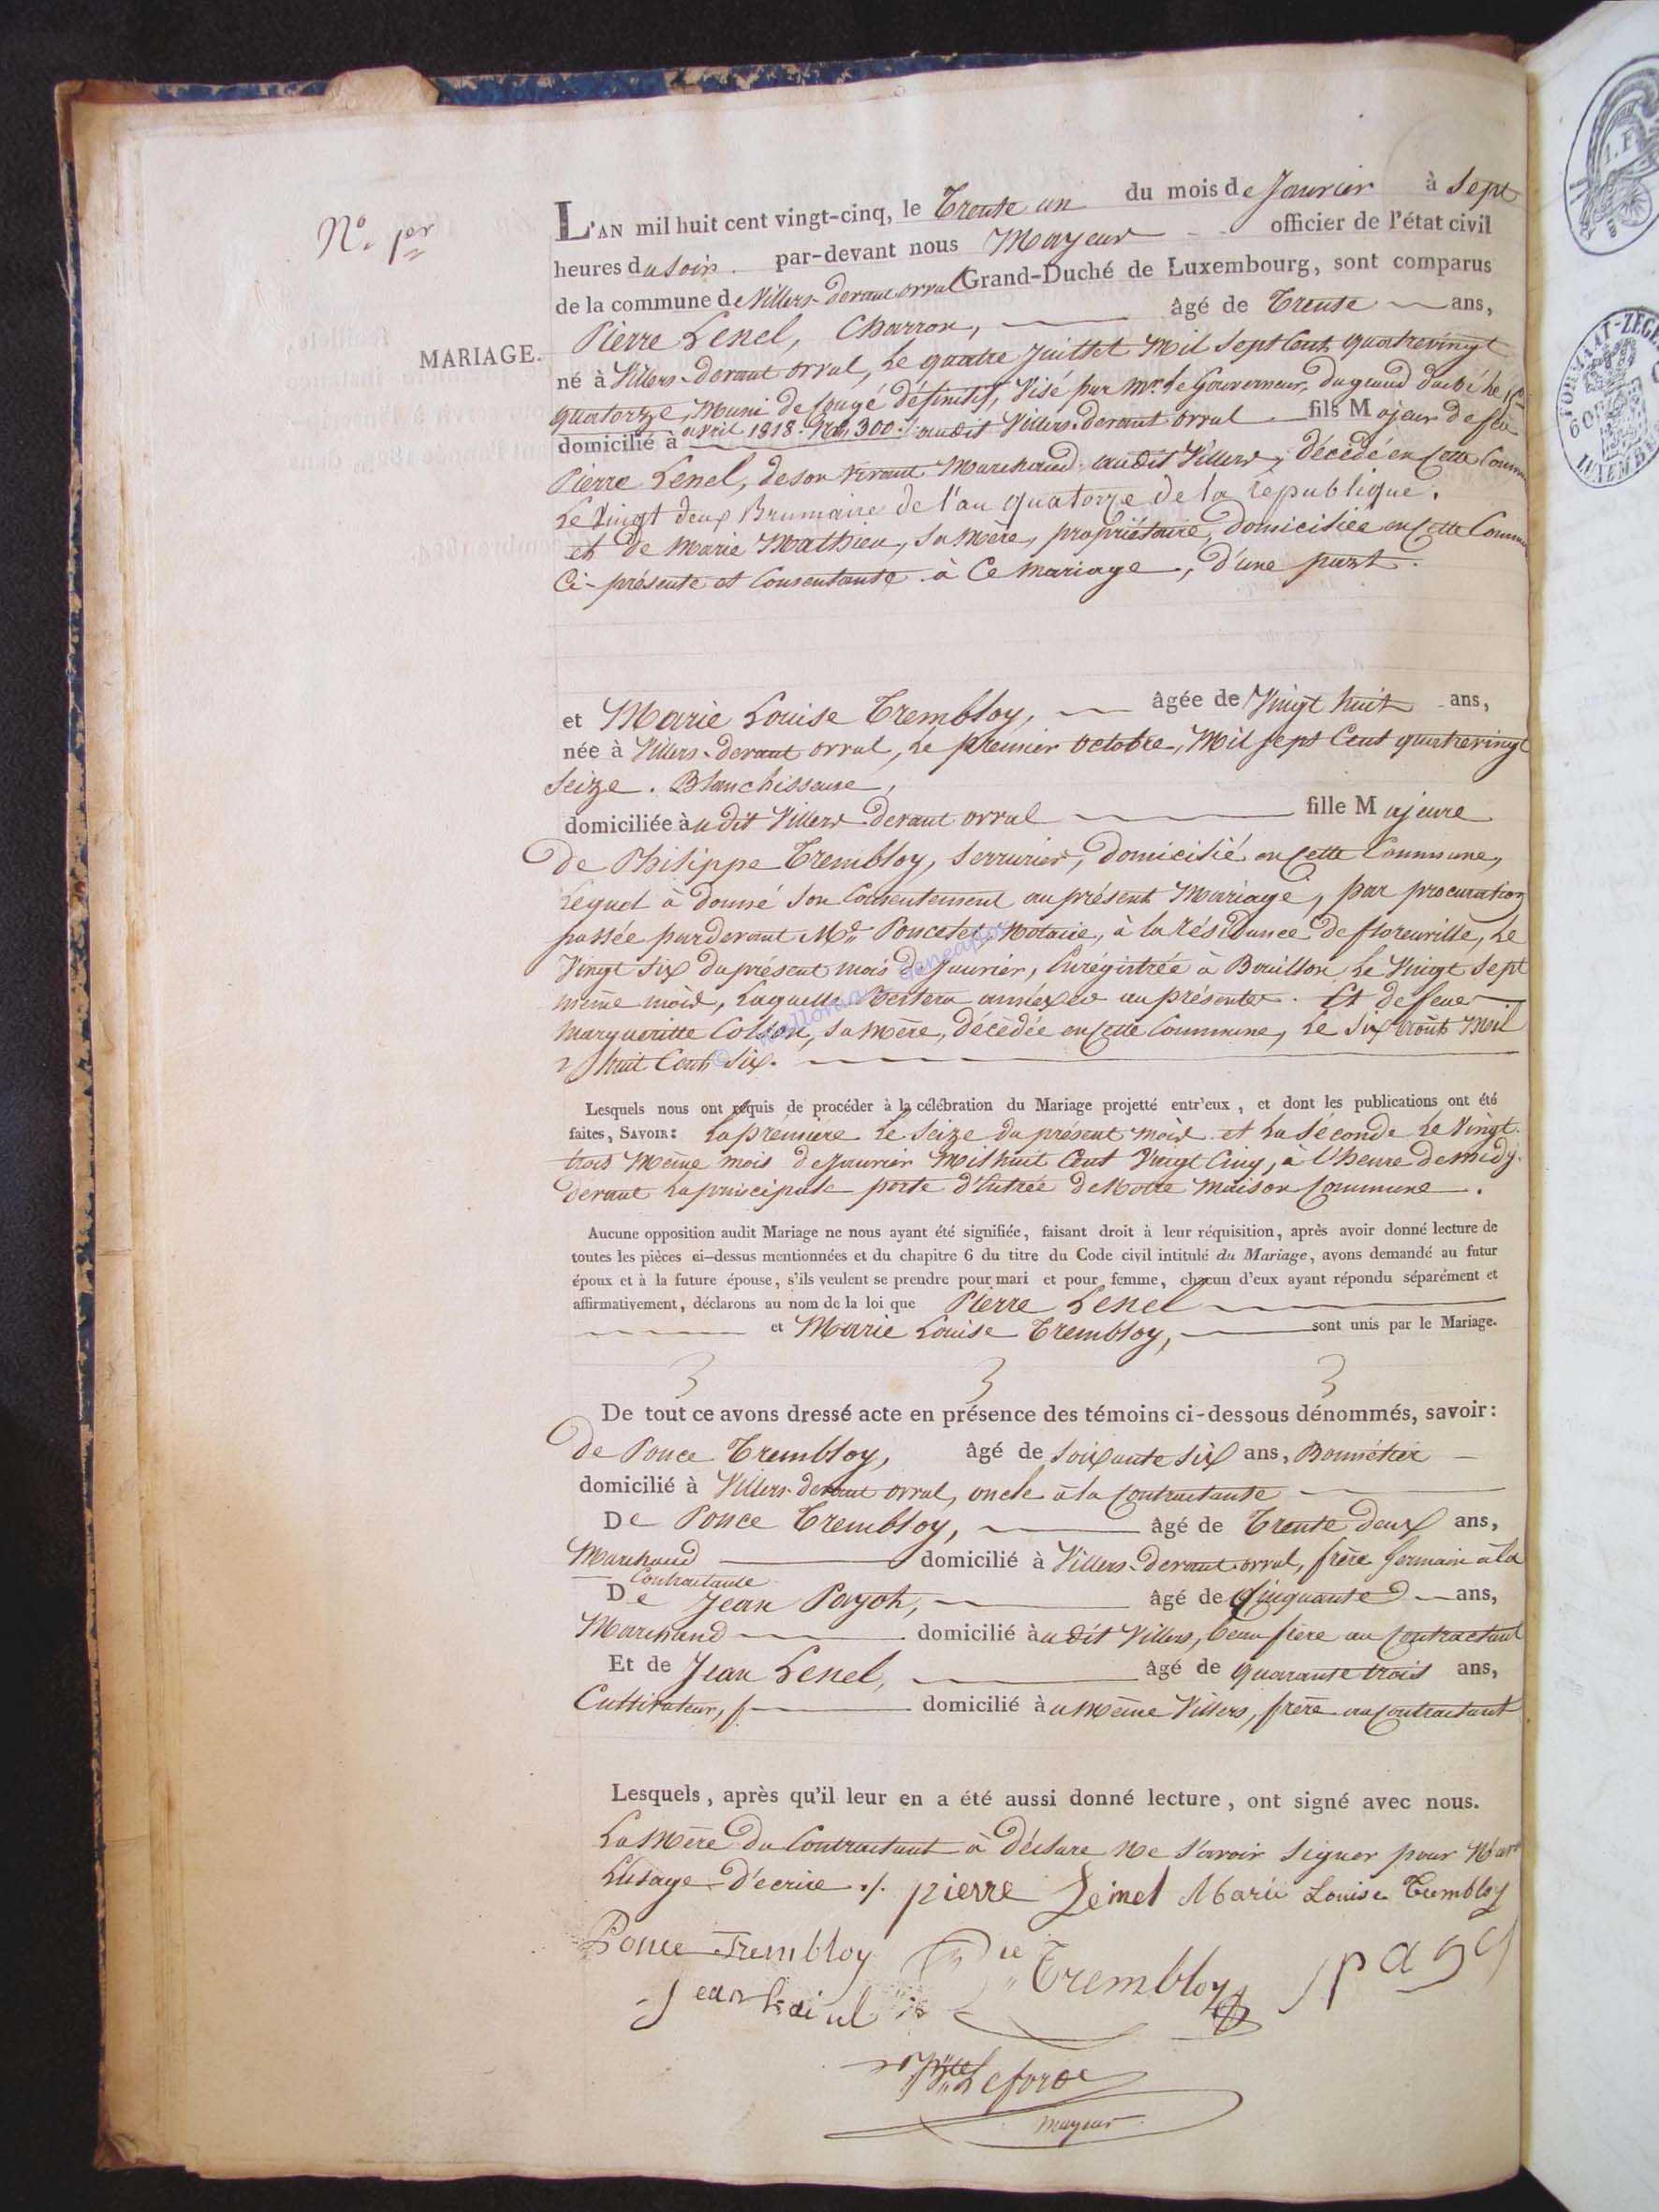 N.o 1er
MARIAGE.
L'AN mil huit cent vingt-cinq, le Trente un du mois de Janvier à Sept
heures du soir. par-devant nous Mayeur officier de l'état civil
de la commune de Villers-devant orval Grand-Duché de Luxembourg, sont comparus
Pierre Lenel, Charron, âgé de Trente ans,
né à Villers-devant orval, Le quatre Juillet Mil Sept Cent quatrevingt
quatorze, Muni de Congé définitif, Visé par Mr. Le Gouverneur, du grand duché le
avril 1818. No. 300.
domicilié à audit Villers-devant orval fils Majeur de feu
Pierre Lenel, de son vivant Marchand audit Villers, décédé en Cette Commune
Le Vingt deux Brumaire de l'an quatorze de la republique.
et de Marie Mathieu, Sa Mère, propriétaire, domiciliée en Cette Commune
Ci-présente et Consentante à Ce mariage, d'une part.
et Marie Louise Trembloy, âgée de Vingt huit ans,
née à Villers-devant orval, Le premier octobre, Mil Sept Cent quatrevingt
Seize. Blanchisseuse,
domiciliée à udit Villers devant orval fille Majeure
De Philippe Trembloy, Serrurier, domicilié en Cette Commune,
Lequel à donné Son Consentement au présent Mariage, par procuration
passée pardevant Me. Poncelet Notaire, à la résidance de florenville, Le
Vingt Six du présent mois de Janvier, Enrégistrée à Bouillon Le Vingt Sept
même mois, Laquelle Restera annéxée au présente. Et de feue
Margueritte Colson, Sa Mère, décédée en Cette Commune, Le Six août Mil
huit Cent Six.
Lesquels nous ont requis de procéder à la célébration du Mariage projetté entr'eux, et dont les publications ont été
faites, SAVOIR: La première Le Seize du présent mois et La Séconde Le Vingt
trois Même mois de Janvier Mil huit Cent Vingt Cinq, à l'heure de midy.
devant La principale porte d'Entrée de Notre Maison Commune.
Aucune opposition audit Mariage ne nous ayant été signifiée, faisant droit à leur réquisition, après avoir donné lecture de
toutes les pièces ci-dessus mentionnées et du chapitre 6 du titre du Code civil intitulé du Mariage, avons demandé au futur
époux et à la future épouse, s'ils veulent se prendre pour mari et pour femme, chacun d'eux ayant répondu séparément et
affirmativement, déclarons au nom de la loi que Pierre Lenel
et Marie Louise Trembloy, sont unis par le Mariage.
3 3 3
De tout ce avons dressé acte en présence des témoins ci-dessous dénommés, savoir:
De Ponce Trembloy, âgé de Soixante Six ans, Bonnétier
domicilié à Villers-devant orval, oncle à la Contractante
De Ponce Trembloy, âgé de Trente deux ans,
Marchand domicilié à Villers-devant orval, frère Germain à la
Contractante
De Jean Payot, âgé de Cinquante ans,
Marchand domicilié à udit Villers, beau frère au Contractant
Et de Jean Lenel, âgé de quarante trois ans,
Cultivateur, domicilié à u Même Villers, frère au Contractant
Lesquels, après qu'il leur en a été aussi donné lecture, ont signé avec nous.
La Mère du Contractant à déclare Ne S'avoir Signer pour
L'Usage d'écrire ./. pierre Leinel Marie Louise Trembloy
Ponce Trembloy Trembloy
Jean
Leforge
mayeur